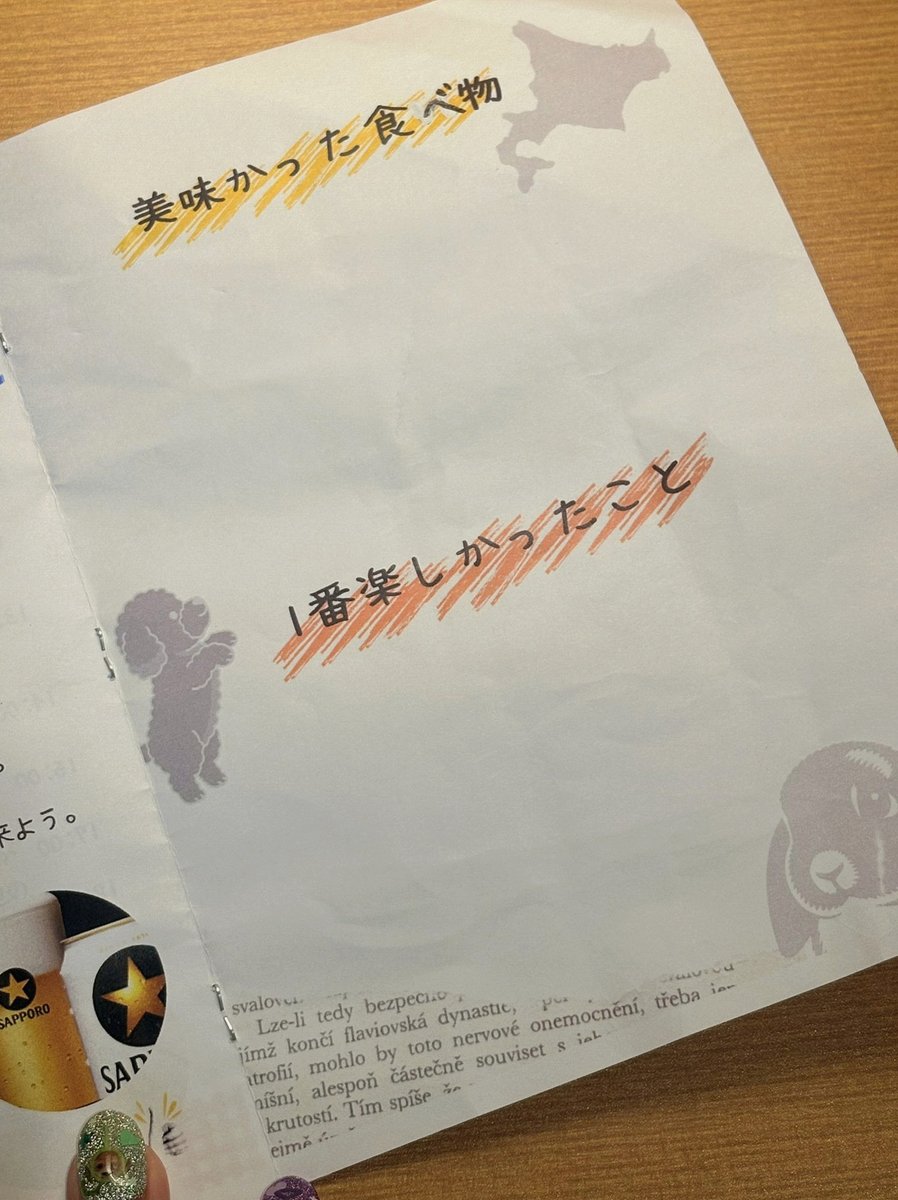 美味かった食べ物
1番楽しかったこと
来よう。
SAPPORO
Lze-li tedy bezpečno
jímž končí flaviovská dynastie,
trofií, mohlo by toto nervové onemocnění, třeba jen
níšní, alespoň částečně souviset s
krutostí. Tím spíše že